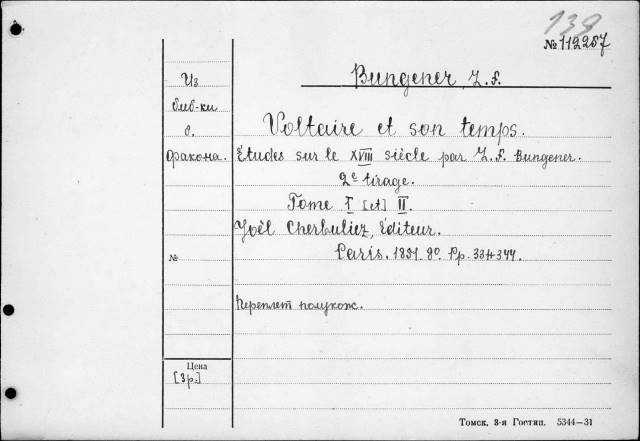 139
№ 112257
Из
библ-ки
о.
Фракона.
Bungener L. F.
Voltaire et son temps.
Études sur le XVIII siècle par L. F. Bungener.
2e tirage.
Tome I [et] II.
Joël Cherbuliez, Éditeur.
№
Paris. 1851. 8o. Pp. 334+377.
Переплет полукож.
Цена
[3р.]
Томск, 3-я Гостип. 5344—31